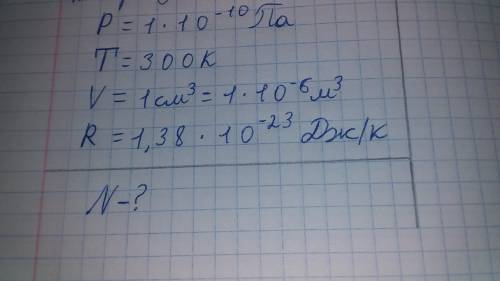 P = 1 · 10⁻¹⁰ Па
T = 300К
V = 1см³ = 1 · 10⁻⁶ м³
R = 1,38 · 10⁻²³ Дж/к
N-?